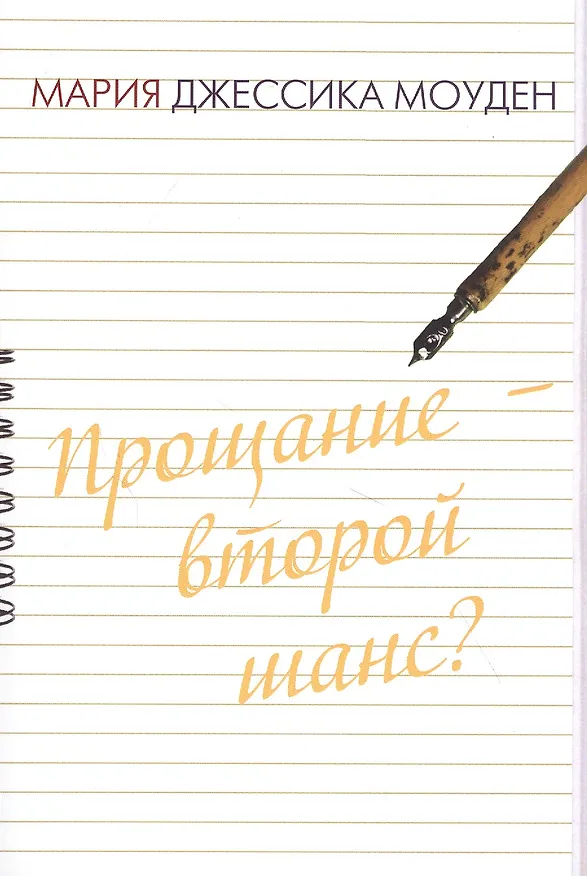 МАРИЯ ДЖЕССИКА МОУДЕН
Прощание –
второй
шанс?